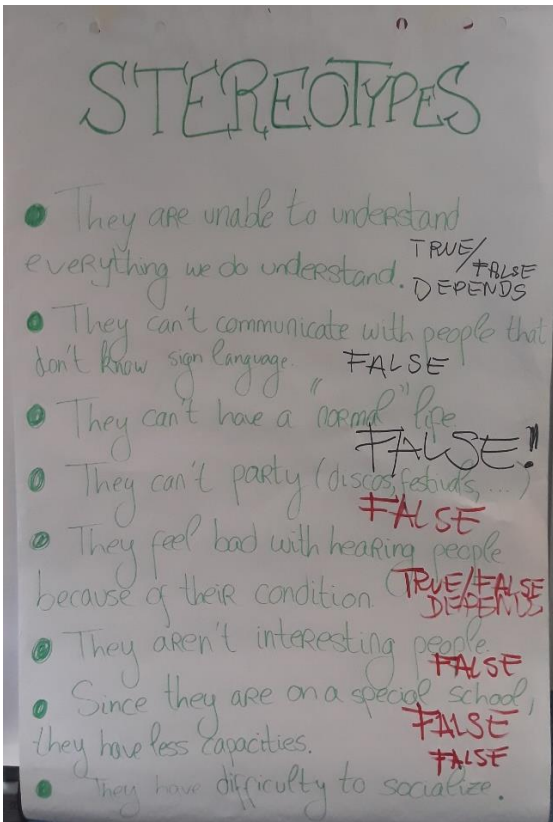 STEREOTYPES
They are unable to understand
everything we do understand. TRUE/FALSE
DEPENDS
They can't communicate with people that
don't know sign language. FALSE
They can't have a "normal" life
FALSE!
They can't party (discos, festivals, ...)
FALSE
They feel bad with hearing people
because of their condition. (TRUE/FALSE
DEPENDS
They aren't interesting people.
FALSE
Since they are on a special school,
FALSE
they have less capacities.
FALSE
They have difficulty to socialize.